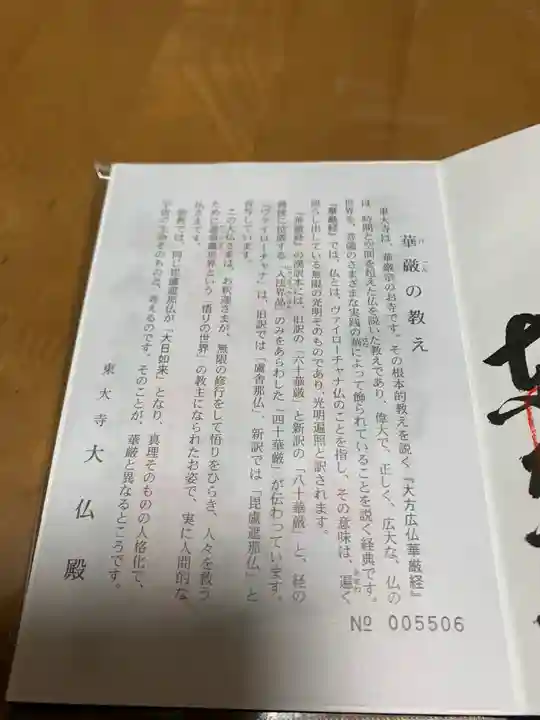 華厳の教え
け ごん
東大寺は、華厳宗のお寺です。その根本的教えを説く『大方広仏華厳経』
は、時間と空間を超えた仏を説いた教えであり、偉大で、正しく、広大な、仏の
世界を、菩薩のさまざまな実践の華によって飾られていることを説く経典です。
『華厳経』では、仏とは、ヴァイローチャナ仏のことを指し、その意味は、遍く
照らし出している無限の光明そのものであり、光明遍照と訳されます。
『華厳経』の漢訳本には、旧訳の「六十華厳」と新訳の「八十華厳」と、経の
最後に位置する「入法界品」のみをあらわした「四十華厳」が伝わっています。
「ヴァイローチャナ」は、旧訳では「盧舎那仏」、新訳では「毘盧遮那仏」と
音写しています。
この大仏さまは、お釈迦さまが、無限の修行をして悟りをひらき、人々を救う
ために蓮華蔵世界という「悟りの世界」の教主になられたお姿で、実に人間的な
仏さまです。
密教では、同じ毘盧遮那仏が「大日如来」となり、真理そのものの人格化で、
宇宙の生命そのものだと、考えるのです。そのことが、華厳と異なるところうです。
東大寺 大仏殿
№ 005506